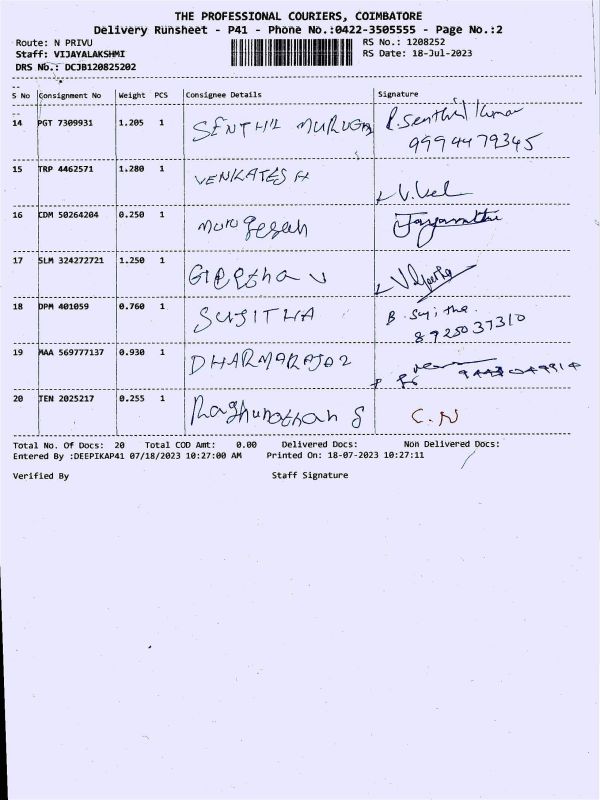 THE PROFESSIONAL COURIERS, COIMBATORE
Delivery Runsheet - P41 - Phone No.:0422-3505555 - Page No.:2
Route: N PRIVU RS No.: 1208252
Staff: VIJAYALAKSHMI RS Date: 18-Jul-2023
DRS No.: DCJB120825202
S No Consignment No Weight PCS Consignee Details Signature
14 PGT 7309931 1.205 1 SENTHIL MURUGAN R.Senthil Kumar
9994479345
15 TRP 4462571 1.280 1 VENKATESH V.Vel
16 CDM 50264204 0.250 1 Murugesan
17 SLM 324272721 1.250 1 Geetha V
18 DPM 401059 0.760 1 SUJITHA B. Sujitha
8925037310
19 MAA 569777137 0.930 1 DHARMARAJ
20 TEN 2025217 0.255 1 Raghunathan S C.N
Total No. Of Docs: 20 Total COD Amt: 0.00 Delivered Docs: Non Delivered Docs:
Entered By :DEEPIKAP41 07/18/2023 10:27:00 AM Printed On: 18-07-2023 10:27:11
Verified By Staff Signature